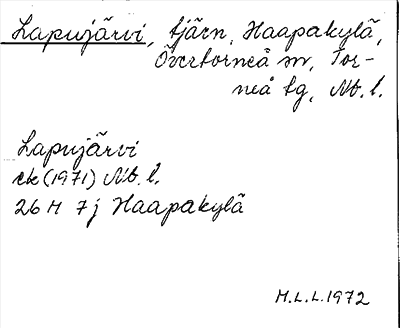 Lapujärvi, tjärn, Haapakylä,
Övertorneå sn, Tor-
neå tg, Nb. l.
Lapujärvi
ek (1971) Nb. l.
26 M 7j Haapakylä
M.L.L. 1972